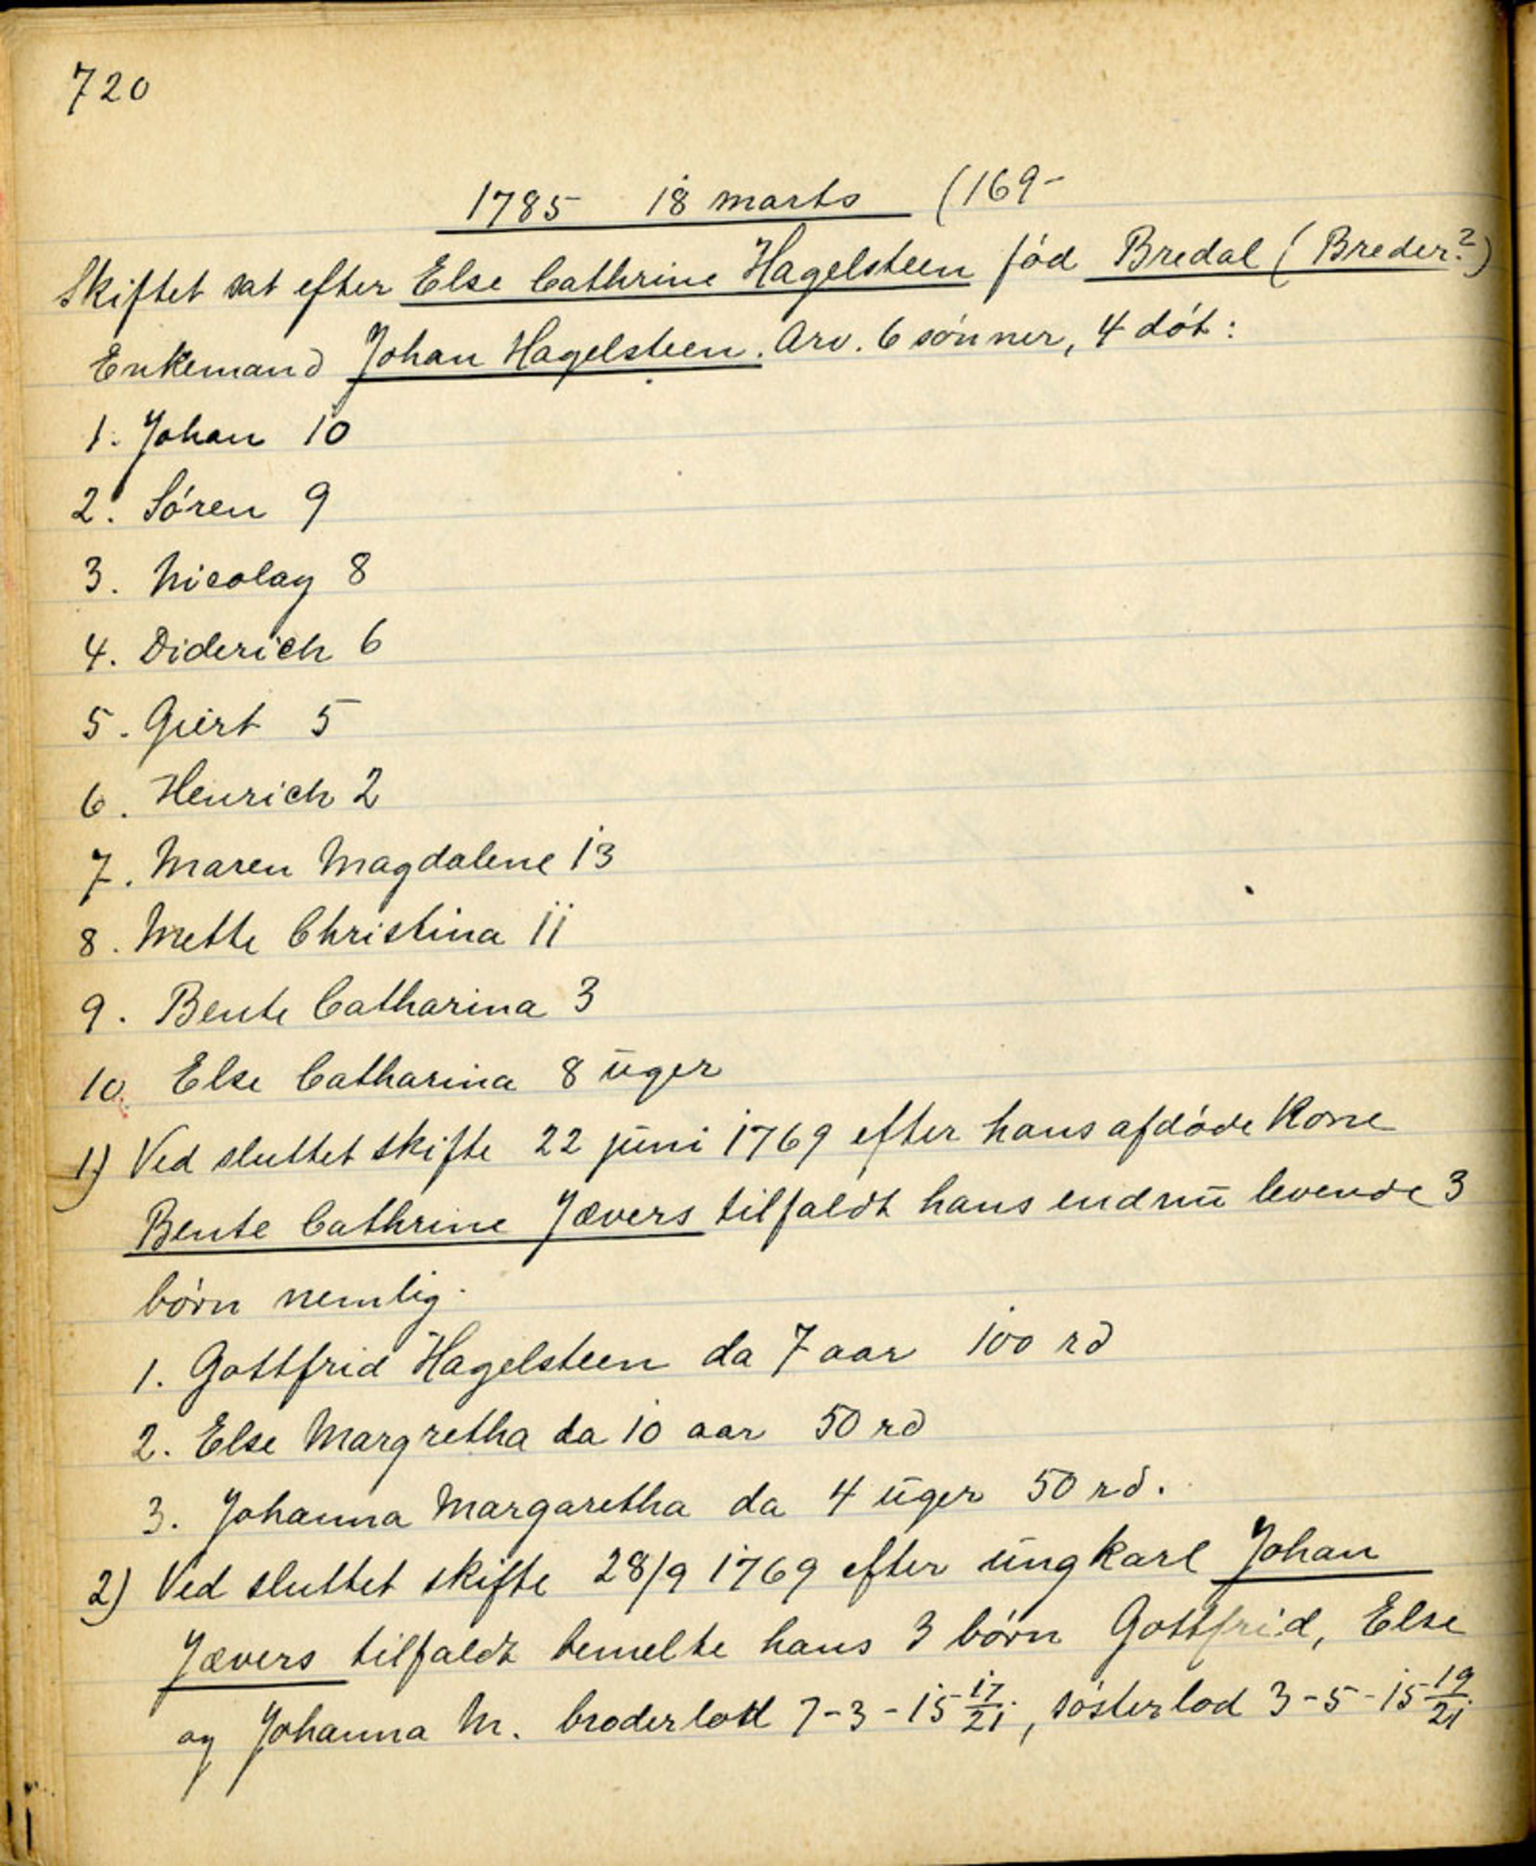 720
1785 18 marts (169-
Skiftet sat efter Else Cathrine Hagelsteen fód Bredal (Breder?)
Enkemand Johan Hagelsteen. Arv. 6 sónner, 4 dót:
1. Johan 10
2. Sóren 9
3. Nicolay 8
4. Diderich 6
5. Giert 5
6. Henrich 2
7. Maren Magdalene 13
8. Mette Christina 11
9. Bente Catharina 3
10. Else Catharina 8 uger
1) Ved sluttet skifte 22 juni 1769 efter hans afdóde Kone
Bente Cathrine Jævers tilfaldt hans endnu levende 3
bórn nemlig.
1. Gottfrid Hagelsteen da 7 aar 100 rd
2. Else Margretha da 10 aar 50 rd
3. Johanna Margaretha da 4 uger 50 rd.
2) Ved sluttet skifte 28/9 1769 efter ungkarl Johan
Jævers tilfaldt bemelte hans 3 bórn Gottfrid, Else
og Johanna M. broderlod 7-3-15 17/21, sósterlod 3-5-15 19/21